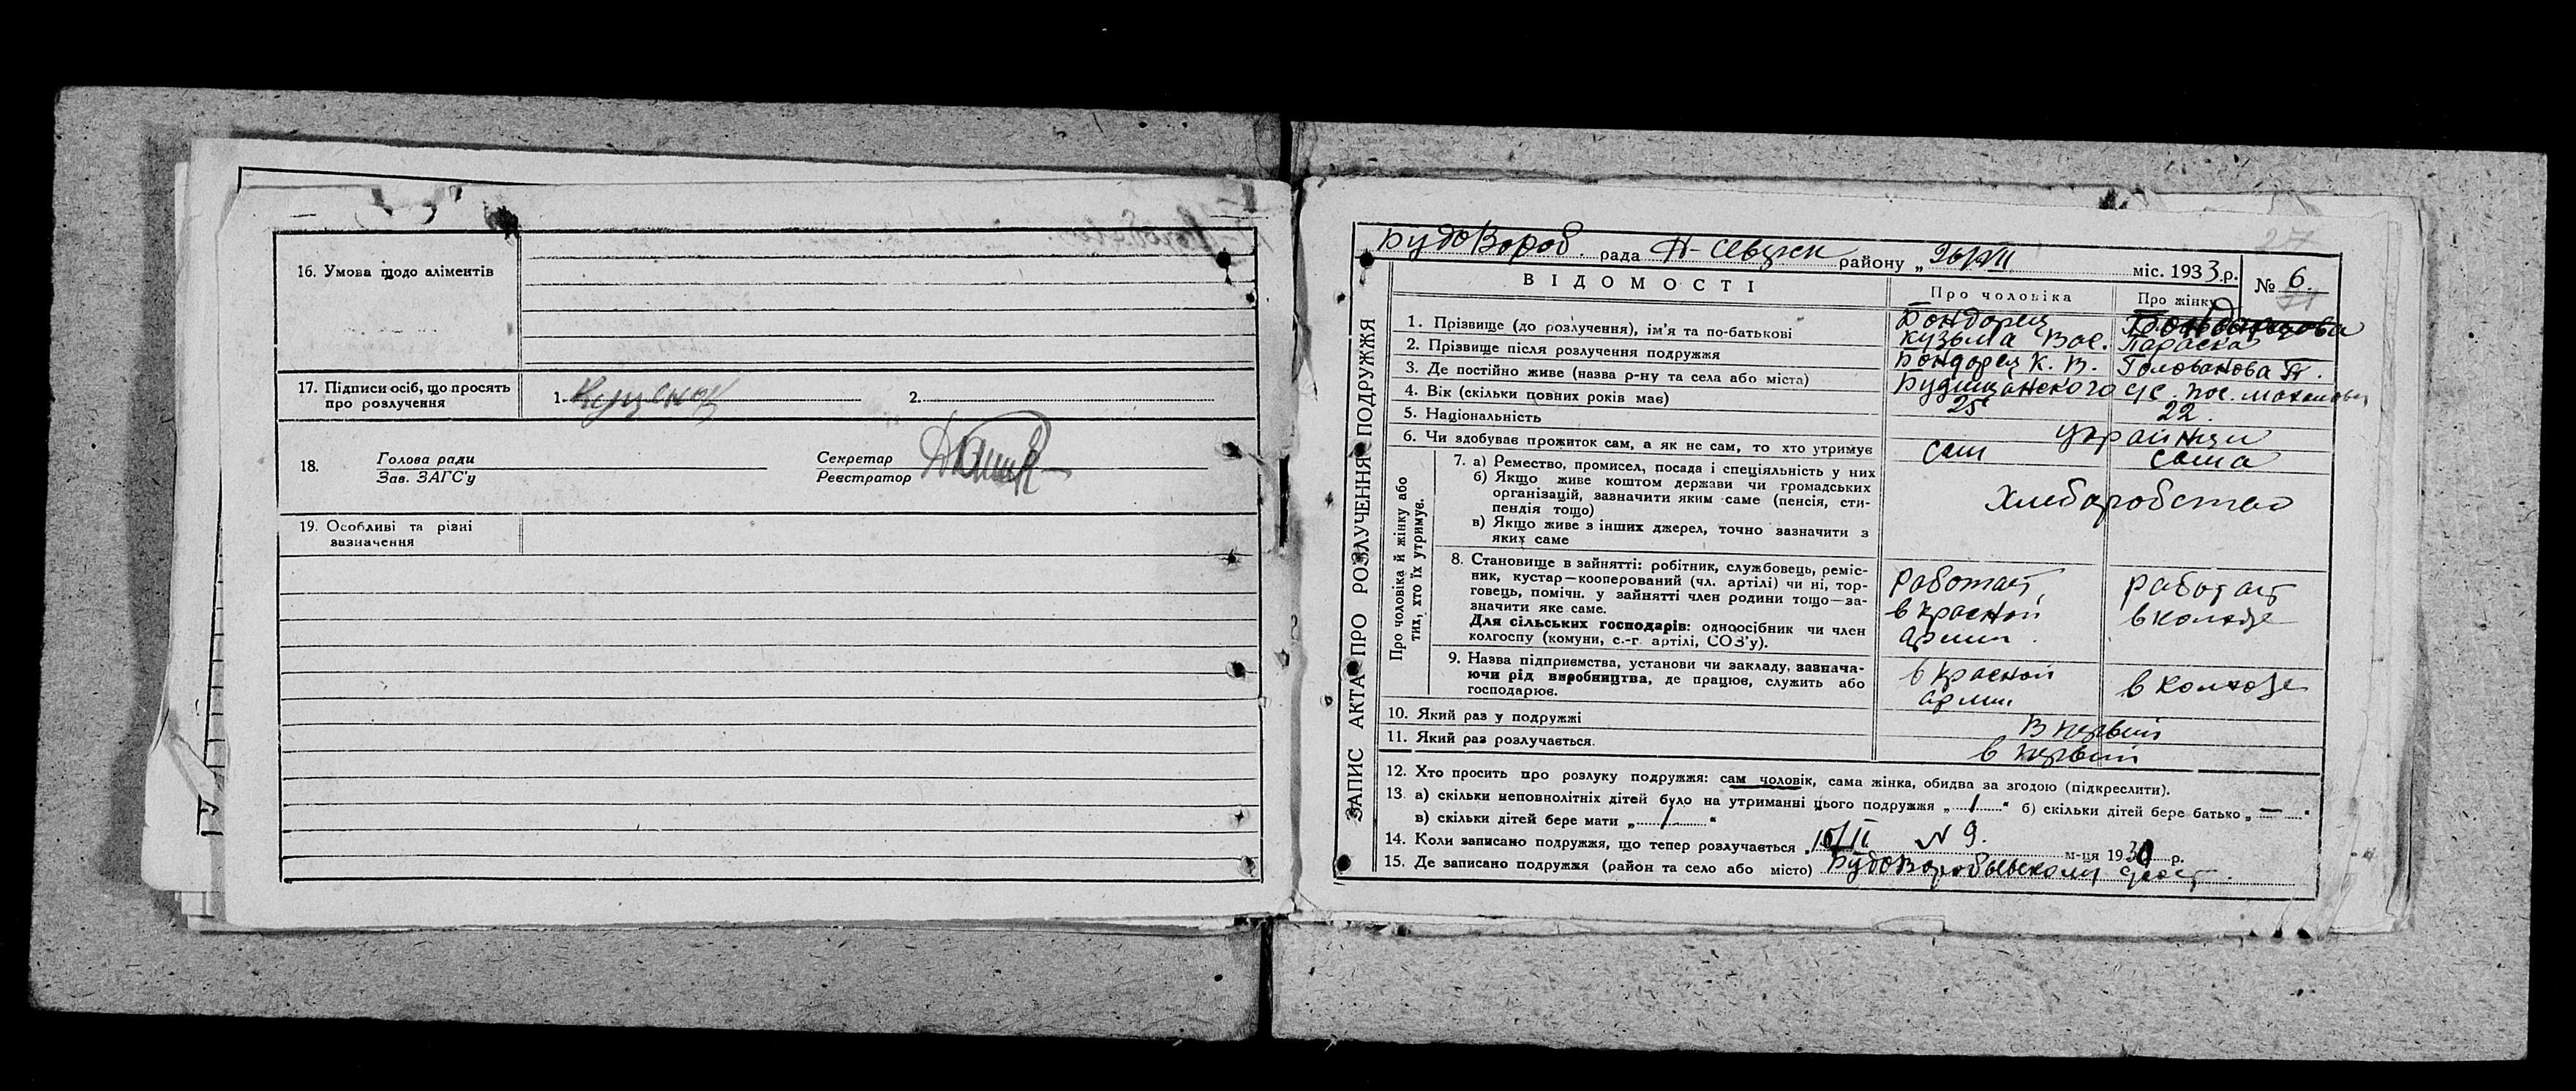 16. Умова щодо аліментів
17. Підписи осіб, що просять
про розлучення
1.
2.
18.
Голова ради
Зав. ЗАГС'у
Секретар
Реєстратор
19. Особливі та різні
зазначення
БудоВороб. рада Н-Севрск району „26/VII міс. 1933 р.
№ 6.
27
ЗАПИС АКТА ПРО РОЗЛУЧЕННЯ ПОДРУЖЖЯ
ВІДОМОСТІ
Про чоловіка
Про жінку
1. Прізвище (до розлучення), ім'я та по-батькові
Бондорец
Кузьма Вас.
Параска
2. Прізвище після розлучення подружжя
Бондорец К. В.
Голованова П.
3. Де постійно живе (назва р-ну та села або міста)
с/с. пос.
4. Вік (скільки повних років має)
25
22.
5. Національність
украинци
6. Чи здобуває прожиток сам, а як не сам, то хто утримує
сам
сама
Про чоловіка й жінку або
тих, хто їх утримує.
7. а) Ремество, промисел, посада і спеціяльність у них
б) Якщо живе коштом держави чи громадських
організацій, зазначити яким саме (пенсія, сти-
пендія тощо)
в) Якщо живе з інших джерел, точно зазначити з
яких саме
хлеборобство
8. Становище в зайнятті: робітник, службовець, реміс-
ник, кустар—кооперований (чл. артілі) чи ні, тор-
говець, помічн. у зайнятті член родини тощо—за-
значити яке саме.
Для сільських господарів: одноосібник чи член
колгоспу (комуни, с.-г. артілі, СОЗ'у).
работает
в красной
армии.
работает
в колхозе
9. Назва підприємства, установи чи закладу, зазнача-
ючи рід виробництва, де працює, служить або
господарює.
в красной
армии
в колхозе
10. Який раз у подружжі
В первый
11. Який раз розлучається.
в первый
12. Хто просить про розлуку подружжя: сам чоловік, сама жінка, обидва за згодою (підкреслити).
13 а) скільки неповнолітніх дітей було на утриманні цього подружжя „ 1 “ б) скільки дітей бере батько „ — “
в) скільки дітей бере мати „ 1 “
14. Коли записано подружжя, що тепер розлучається „ 10/II N 9. м-ця 1930 р.
15. Де записано подружжя (район та село або місто) БудоВоробьевском